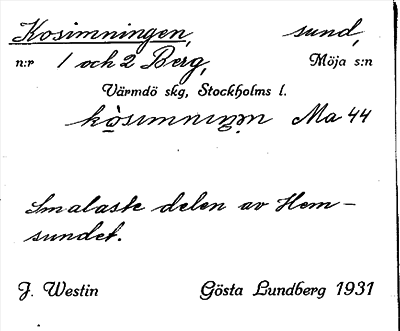 Kosimningen, sund,
n:r 1 och 2 Berg, Möja s:n
Värmdö skg, Stockholms l.
Ma 44
Smalaste delen av Hem-
sundet.
J. Westin Gösta Lundberg 1931